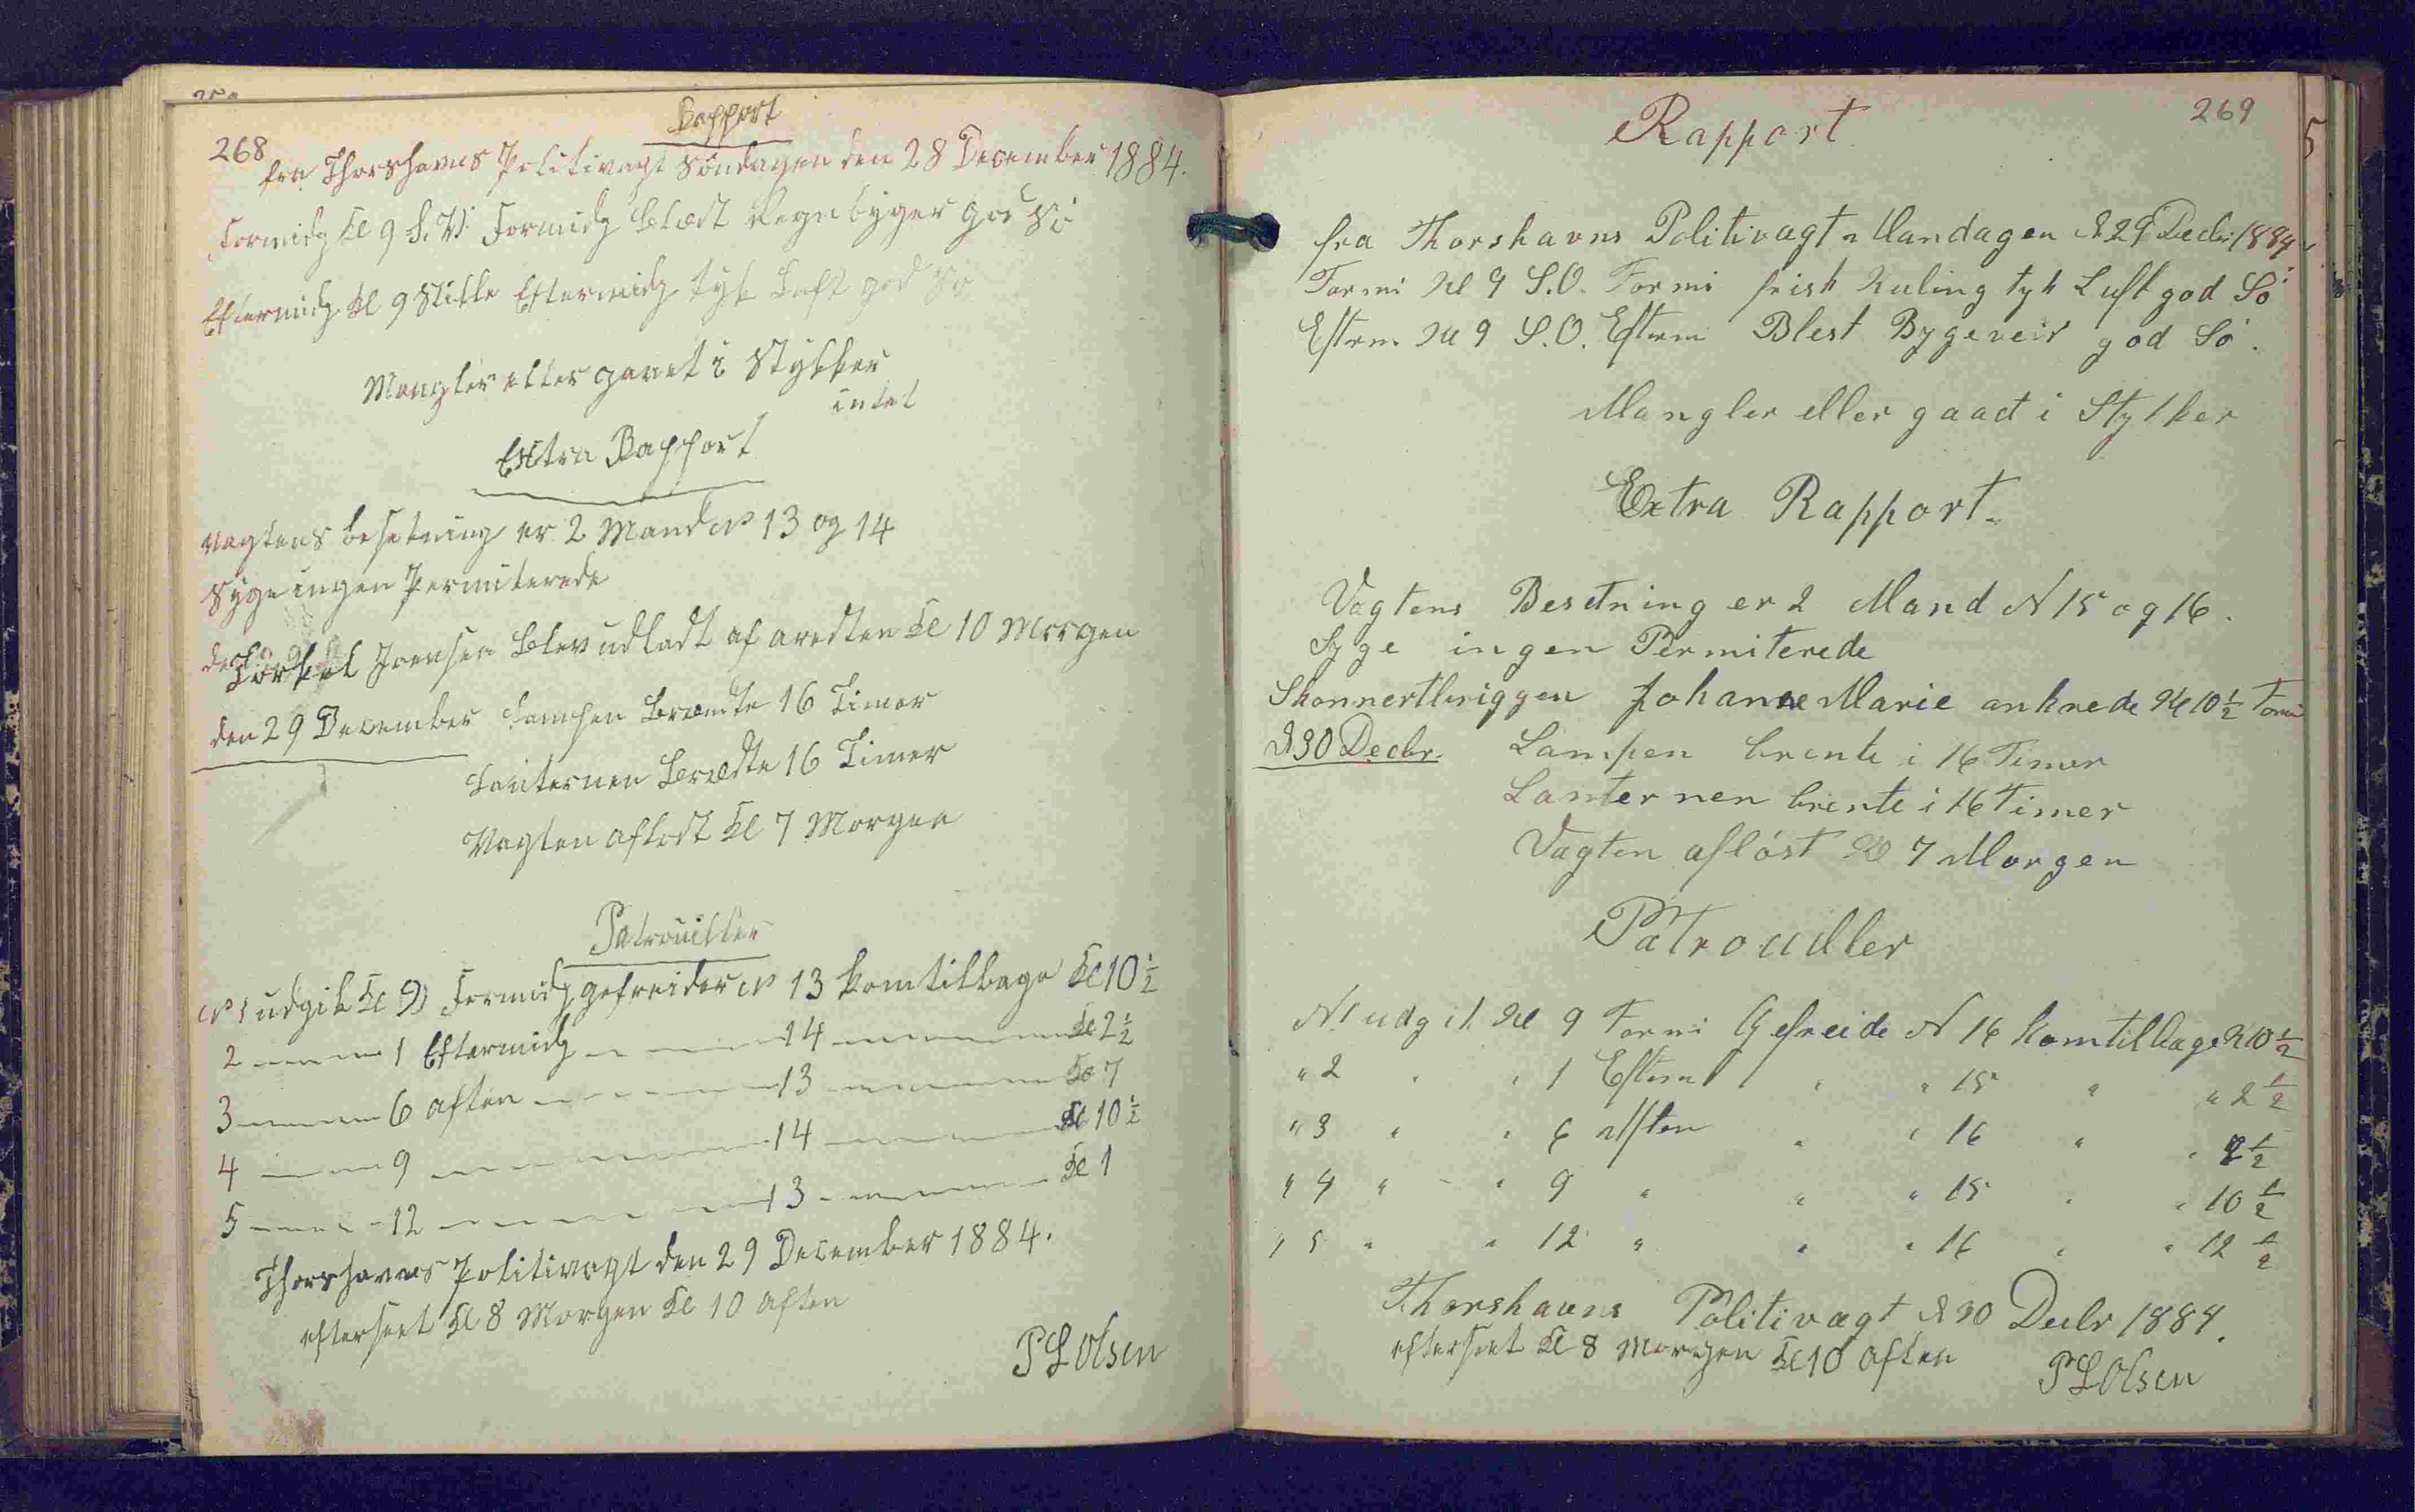 268
Rapport
fra Thorshavns Politivagt Söndagen den 28 December 1884.
Formidg Kl 9 S.V. Formidg Blæst Regnbyger god Sö
Eftermidg Kl 9 Stille Eftermidg tyk Luft god Sö
Mangler eller gaaet i Stykker
intet
Extra Rapport
Vagtens besetning er 2 Mand No 13 og 14
Syge ingen Permiterede
Joensen Blev udladt af aresten Kl 10 Morgen
den 29 December Lampen Brændte 16 Timer
Lanternen Brændte 16 Timer
Vagten aflöst Kl 7 Morgen
Patrouiller
No 1 udgik Kl 9 Formidg gefreider No 13 kom tilbage Kl 10 1/2
2 — 1 Eftermidg — 14 — Kl 2 1/2
3 — 6 aften — 13 — Kl 7
4 — 9 — 14 — Kl 10 1/2
5 — 12 — 13 — Kl 1
Thorshavns Politivagt den 29 December 1884.
efterseet Kl 8 Morgen Kl 10 aften
P L Olsen
269
Rapport
fra Thorshavns Politivagt Mandagen d 29 Decbr 1884
Formi Kl 9 S.O. Formi frisk Kuling tyk Luft god Sö
Efterm Kl 9 S.O. Efterm Blest Bygeveir god Sö.
Mangler eller gaaet i Stykker
Extra Rapport.
Vagtens Besetning er 2 Mand N 15 og 16.
Syge ingen Permiterede
Skonnertbriggen Johanne Marie ankrede Kl 10 1/2 Formi
d 30 Decbr. Lampen brente i 16 Timer
Lanternen brente i 16 Timer
Vagten aflöst Kl 7 Morgen
Patroudler
N 1 udgik Kl 9 Formi Gefreide N 16 kom tilbage Kl 10 1/2
" 2 " " 1 Efterm " " 15 " " 2 1/2
" 3 " " 6 Aften " " 16 " "
" 4 " " 9 " " " 15 " " 10 1/2
" 5 " " 12 " " " 16 " " 12 1/2
Thorshavns Politivagt d 30 Decbr 1884.
efterseet Kl 8 Morgen Kl 10 aften
P L Olsen